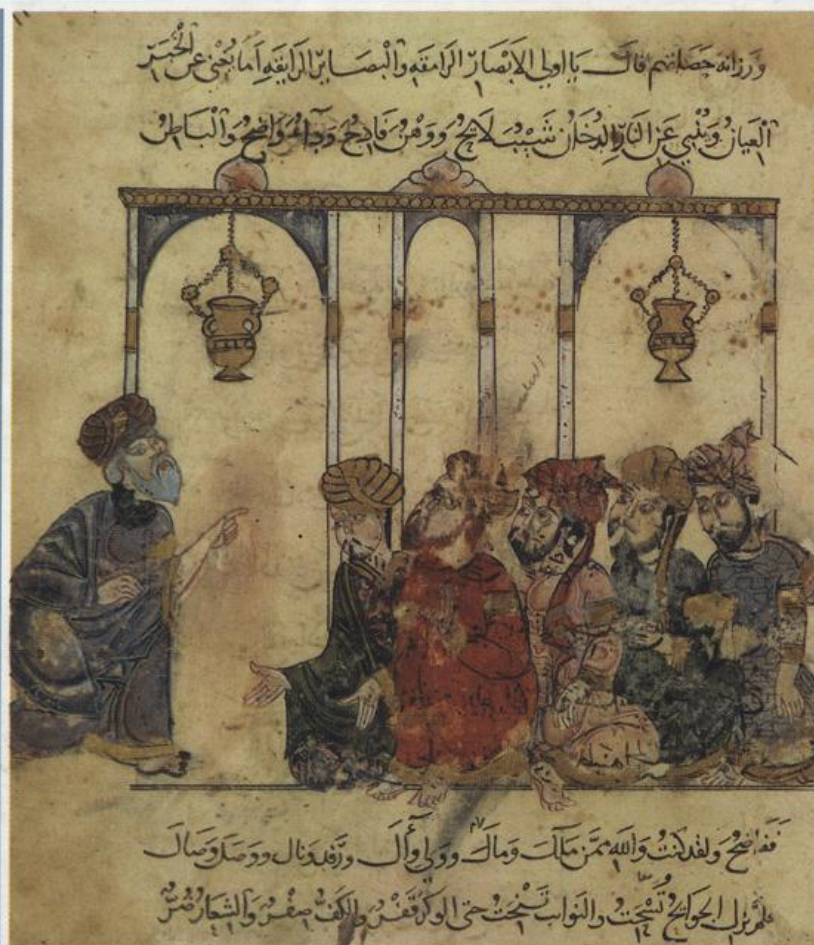 ورزانة حصاتهم قال يا اولي الابصار الرامقه والبصاير الرايقه اما يغني عن الخبر
العيان وينبي عن النار الدخان شيب لايح ووهن فادح وداء واضح والباطن
ففاضح ولقد كنت والله ممن ملك ومال وولي وآل ورفد ونال ووصل وصال
فلم تزل الجوايح تسحت والنوايب تنحت حتى الوكر قفر والكف صفر والشعار ضر